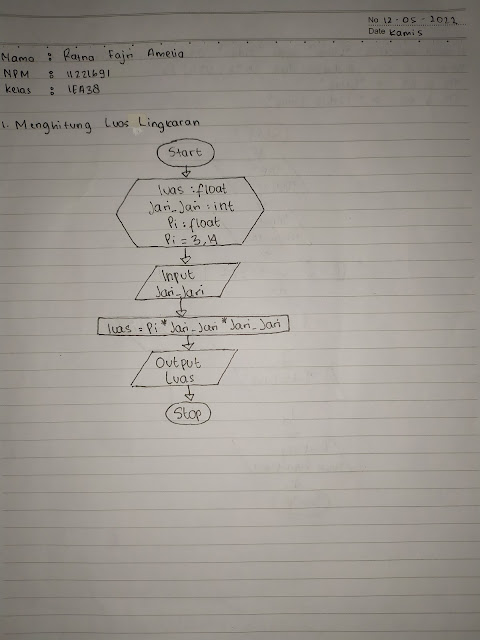 No 12-05-2022
Date Kamis
Nama : Ratna Fajri Amelia
NPM : 11221691
Kelas : 1EA38
1. Menghitung Luas Lingkaran
Start
luas : float
Jari_Jari : int
Pi : float
Pi = 3,14
Input
Jari_Jari
luas = Pi * Jari_Jari * Jari_Jari
Output
Luas
Stop